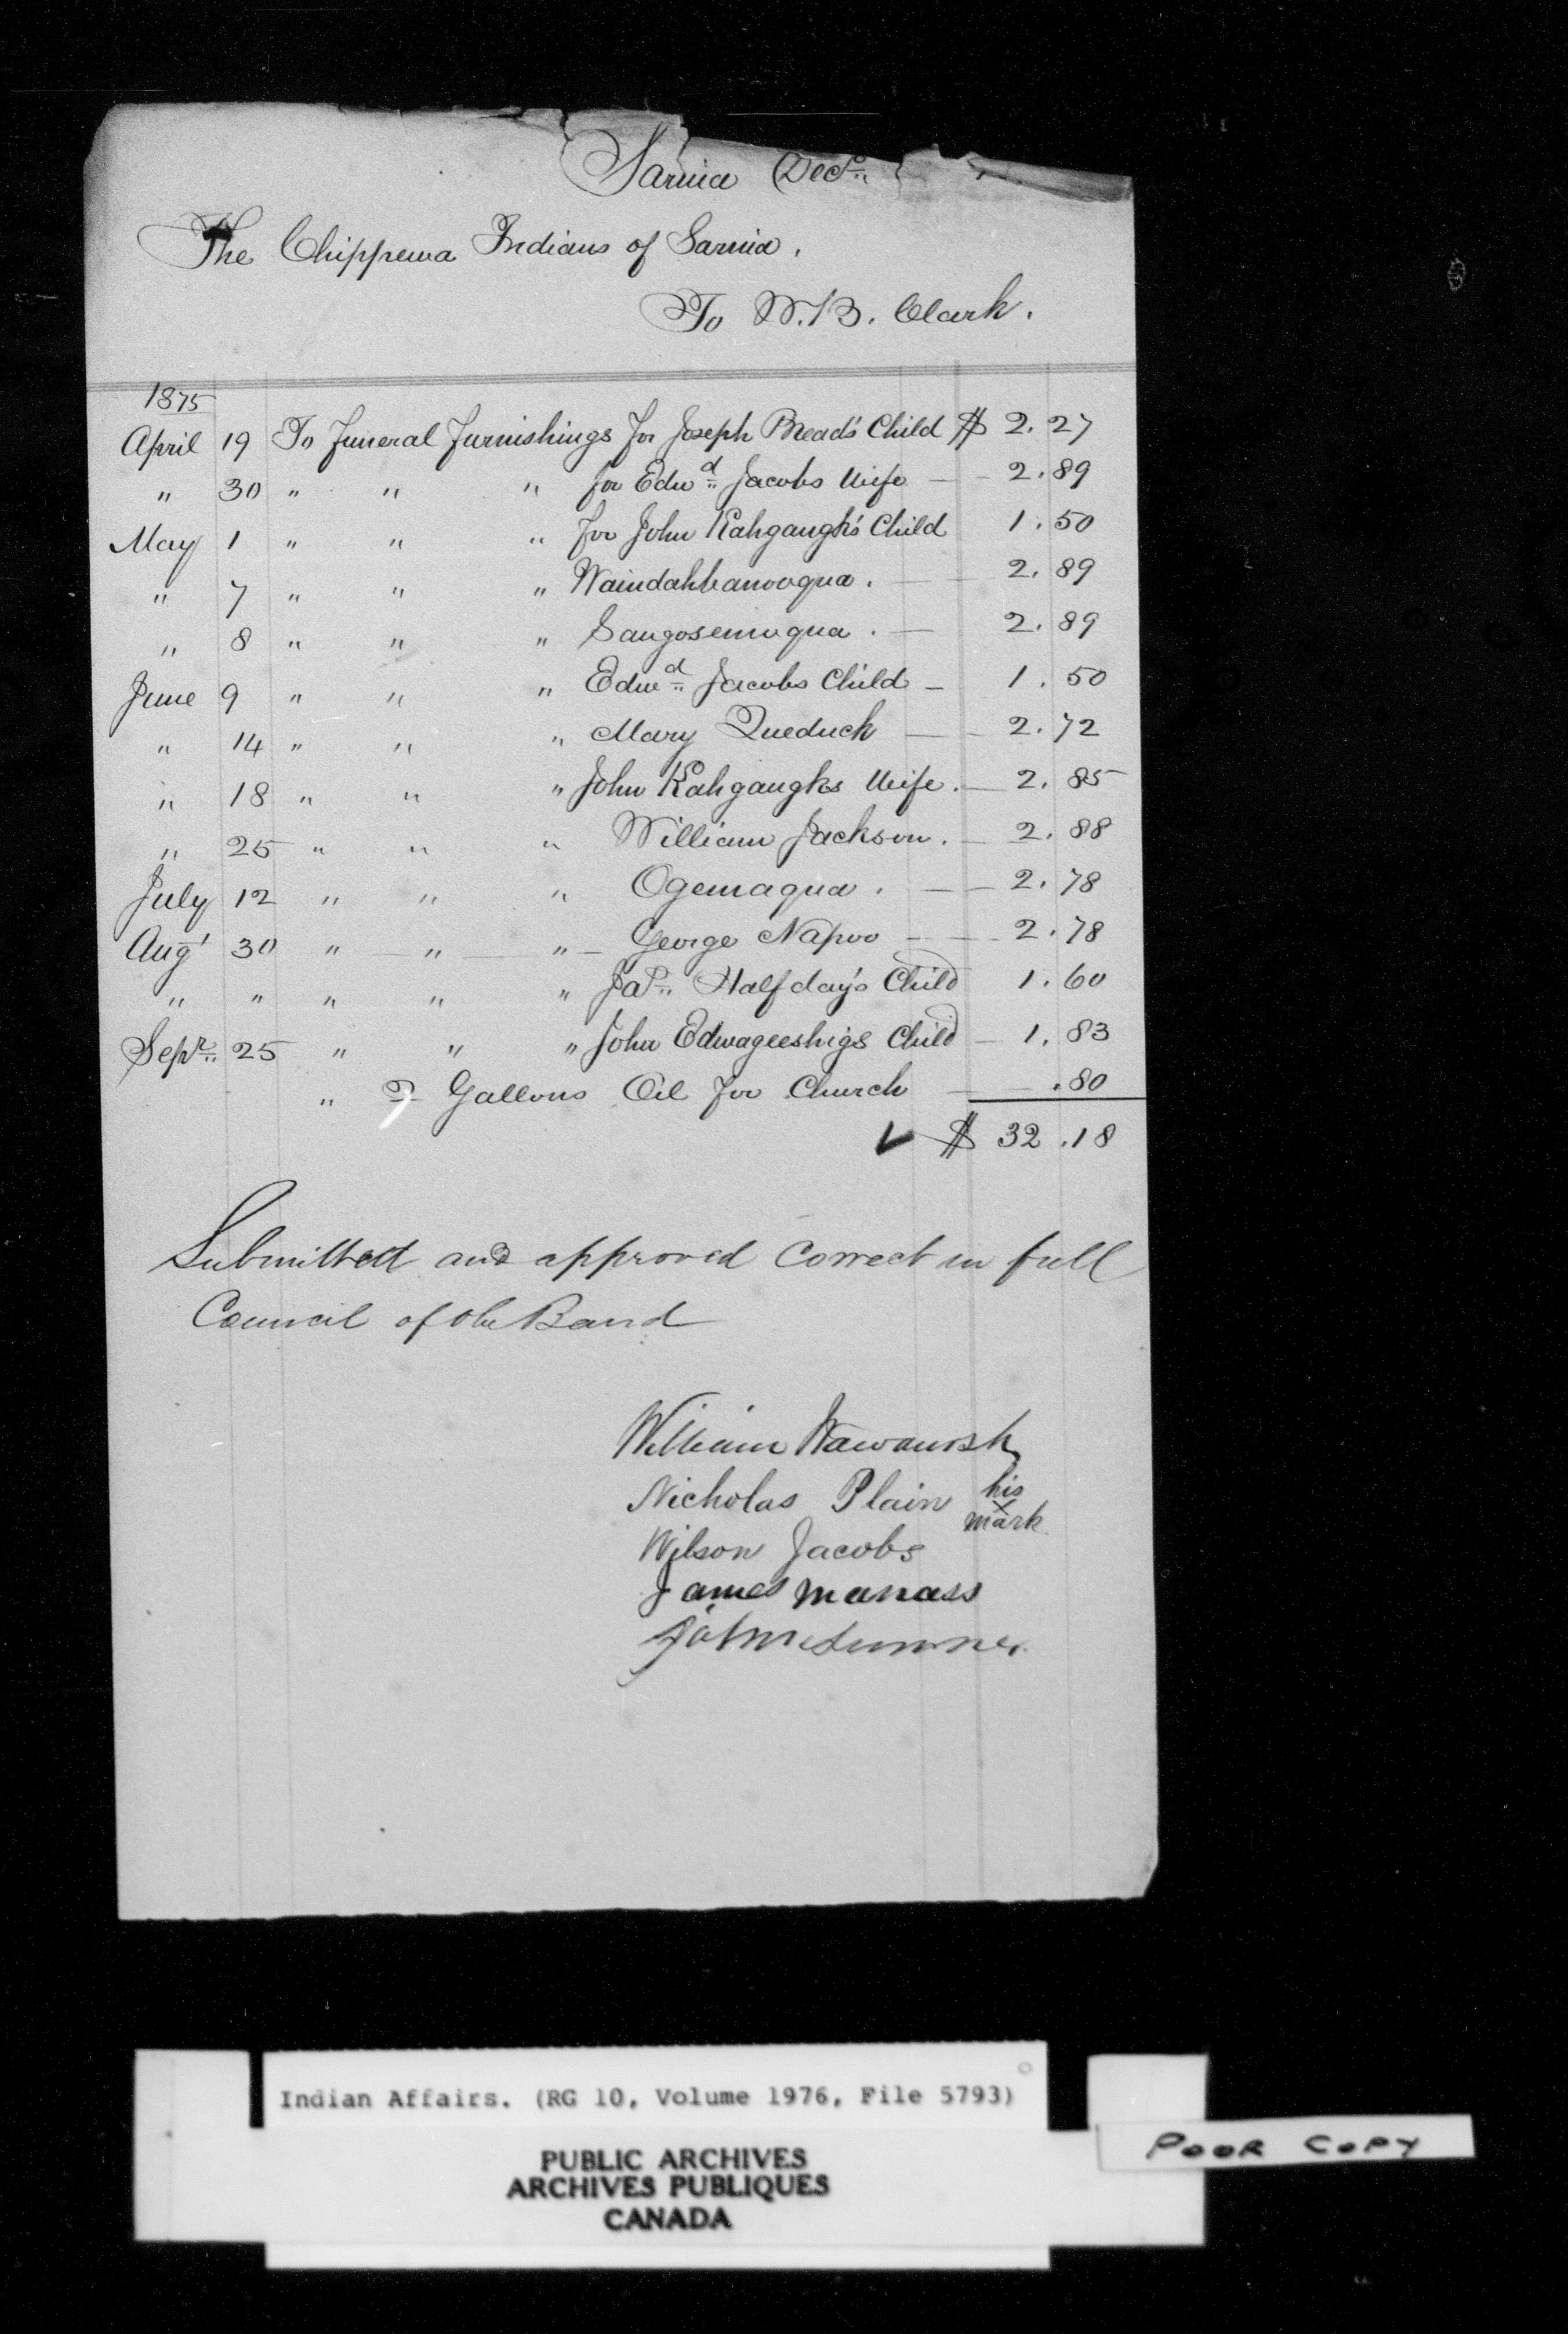 Sarnia Decr.
The Chippewa Indians of Sarnia.
To W.B. Clark.
1875
April 19 To Funeral Furnishings for Joseph Bread's Child $ 2.27
" 30 " " " for Edwd. Jacobs Wife — 2.89
May 1 " " " for John Kahgaugk's Child 1.50
" 7 " " " Waindahbanooqua. — 2.89
" 8 " " " Saugosemoqua. — 2.89
June 9 " " " Edwd. Jacobs Child — 1.50
" 14 " " " Mary Queduck — 2.72
" 18 " " " John Kahgaugks Wife. — 2.85
" 25 " " " William Jackson. — 2.88
July 12 " " " Ogemaqua. — 2.78
Augt 30 " " " George Napoo — 2.78
" " " " " Jas. Halfday's Child 1.60
Sepr. 25 " " " John Edwageeshigs Child — 1.83
" Gallons Oil for Church — .80
$ 32.18
Submitted and approved correct in full
Council of the Band
William Wawanosh
Nicholas Plain his x mark
Wilson Jacobs
James Manass
John Sumner
Indian Affairs. (RG 10, Volume 1976, File 5793)
PUBLIC ARCHIVES
ARCHIVES PUBLIQUES
CANADA
POOR COPY